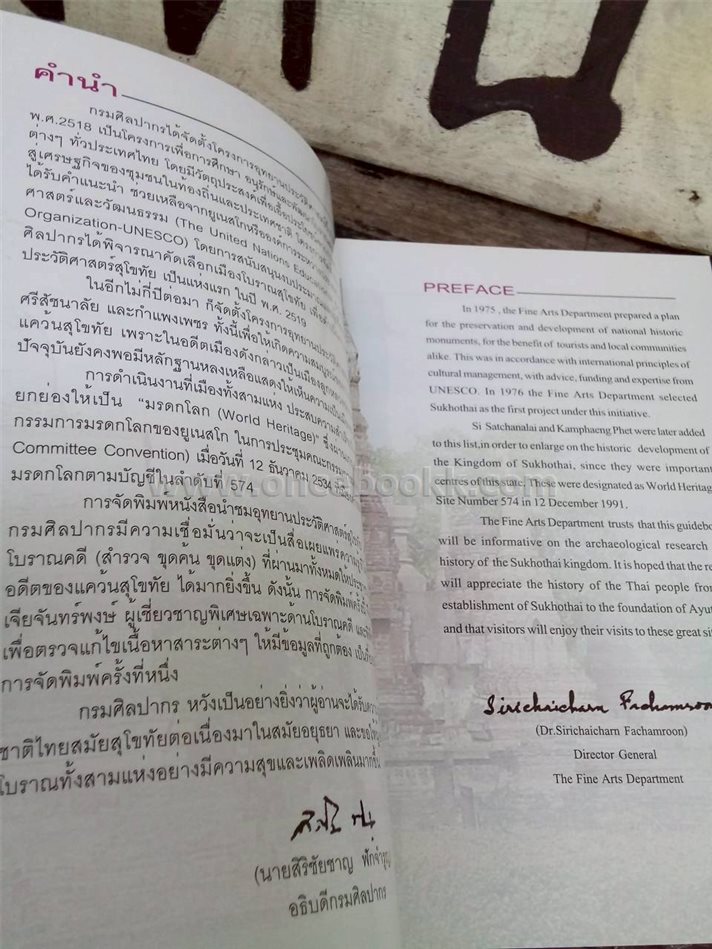 คำนำ
กรมศิลปากรได้จัดตั้งโครงการอุทยานประวัติศาสตร์
พ.ศ.2518 เป็นโครงการเพื่อการศึกษา อนุรักษ์และพัฒนา
ต่างๆ ทั่วประเทศไทย โดยมีวัตถุประสงค์เพื่อเอื้อประโยชน์
สู่เศรษฐกิจของชุมชนในท้องถิ่นและประเทศชาติ โครงการ
ได้รับคำแนะนำ ช่วยเหลือจากยูเนสโกหรือองค์การ
ศาสตร์และวัฒนธรรม (The United Nations Educational
Organization-UNESCO) โดยการสนับสนุนงบประมาณ
ศิลปากรได้พิจารณาคัดเลือกเมืองโบราณสุโขทัย เพื่อ
ประวัติศาสตร์สุโขทัย เป็นแห่งแรก ในปี พ.ศ. 2519
ในอีกไม่กี่ปีต่อมา ก็จัดตั้งโครงการอุทยานประวัติ
ศรีสัชนาลัย และกำแพงเพชร ทั้งนี้เพื่อให้เกิดความสมบูรณ์
แคว้นสุโขทัย เพราะในอดีตเมืองดังกล่าวเป็นเมืองลูกหลวง
ปัจจุบันยังคงพอมีหลักฐานหลงเหลือแสดงให้เห็นความเป็น
การดำเนินงานที่เมืองทั้งสามแห่ง ประสบความสำเร็จ
ยกย่องให้เป็น "มรดกโลก (World Heritage)" ซึ่ง
กรรมการมรดกโลกของยูเนสโก ในการประชุมคณะกรรม
Committee Convention) เมื่อวันที่ 12 ธันวาคม 2534
มรดกโลกตามบัญชีในลำดับที่ 574
การจัดพิมพ์หนังสือนำชมอุทยานประวัติศาสตร์
กรมศิลปากรมีความเชื่อมั่นว่าจะเป็นสื่อเผยแพร่ความรู้
โบราณคดี (สำรวจ ขุดค้น ขุดแต่ง) ที่ผ่านมาทั้งหมดให้
อดีตของแคว้นสุโขทัย ได้มากยิ่งขึ้น ดังนั้น การจัดพิมพ์ครั้ง
เจียจันทร์พงษ์ ผู้เชี่ยวชาญพิเศษเฉพาะด้านโบราณคดี
เพื่อตรวจแก้ไขเนื้อหาสาระต่างๆ ให้มีข้อมูลที่ถูกต้อง
การจัดพิมพ์ครั้งที่หนึ่ง
กรมศิลปากร หวังเป็นอย่างยิ่งว่าผู้อ่านจะได้รับความ
ชาติไทยสมัยสุโขทัยต่อเนื่องมาในสมัยอยุธยา และขอให้
โบราณทั้งสามแห่งอย่างมีความสุขและเพลิดเพลินมากขึ้น
(นายสิริชัยชาญ ฟักจำรูญ)
อธิบดีกรมศิลปากร
PREFACE
In 1975 , the Fine Arts Department prepared a plan
for the preservation and development of national historic
monuments, for the benefit of tourists and local communities
alike. This was in accordance with international principles of
cultural management, with advice, funding and expertise from
UNESCO. In 1976 the Fine Arts Department selected
Sukhothai as the first project under this initiative.
Si Satchanalai and Kamphaeng Phet were later added
to this list,in order to enlarge on the historic development of
the Kingdom of Sukhothai, since they were important
centres of this state. These were designated as World Heritag
Site Number 574 in 12 December 1991.
The Fine Arts Department trusts that this guideboo
will be informative on the archaeological research
history of the Sukhothai kingdom. It is hoped that the re
will appreciate the history of the Thai people from
establishment of Sukhothai to the foundation of Ayut
and that visitors will enjoy their visits to these great si
Sirichaicharn Fachamroon
(Dr.Sirichaicharn Fachamroon)
Director General
The Fine Arts Department